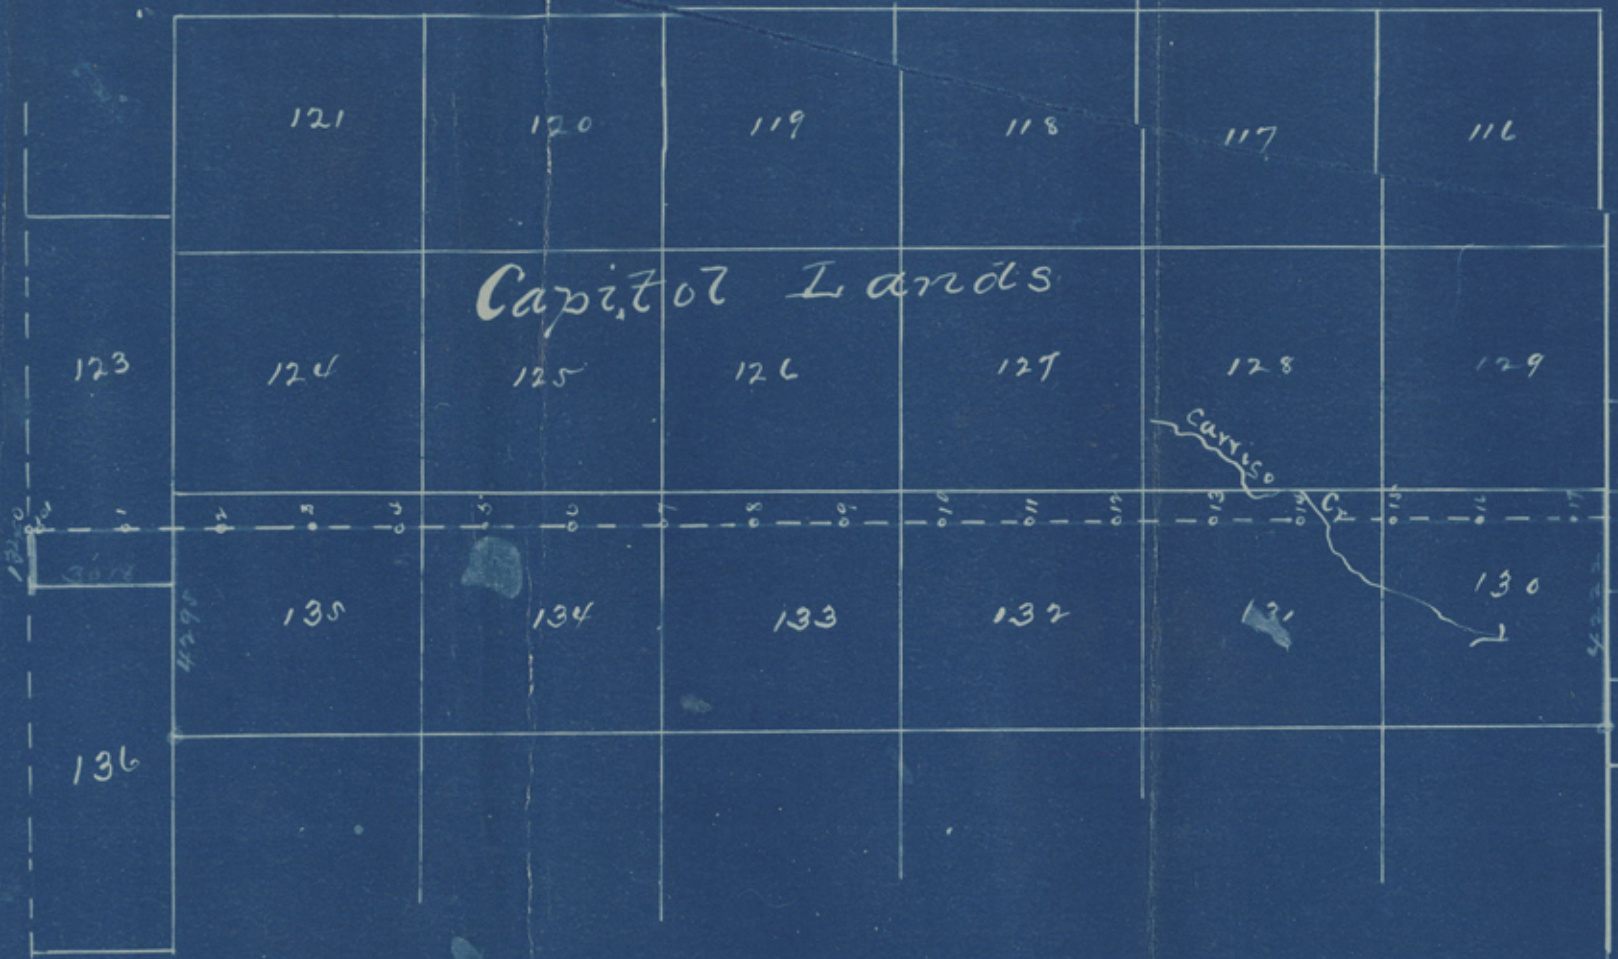 121 120 119 118 117 116
Capitol Lands
123 124 125 126 127 128 129
Carriso Cr
1 2 3 4 5 6 7 8 9 10 11 12 13 14 15 16 17
135 134 133 132 131 130
4295
136